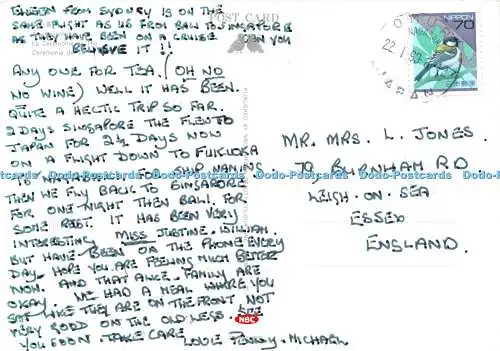 EILEEN FROM SYDNEY IS ON THE
SAME FLIGHT AS US FROM BALI TO SINGAPORE
AS THEY HAVE BEEN ON A CRUISE CAN YOU
BELIEVE IT!!
ANY ONE FOR TEA. (OH NO
NO WINE) WELL IT HAS BEEN.
QUITE A HECTIC TRIP SO FAR.
2 DAYS SINGAPORE THE FLEW TO
JAPAN FOR 2½ DAYS NOW
ON A FLIGHT DOWN TO FUKUOKA
FOR SHIP NAMING
THEN WE FLY BACK TO SINGAPORE
FOR ONE NIGHT THEN BALI. FOR
SOME REST. IT HAS BEEN VERY
INTERESTING MISS JUSTINE. & JILLIAN.
BUT HAVE BEEN ON THE PHONE EVERY
DAY. HOPE YOU ARE FEELING MUCH BETTER
NOW. AND THAT FAMILY ARE
OKAY. WE HAD A MEAL WHERE YOU
SAT LIKE THEY ARE ON THE FRONT NOT
VERY GOOD ON THE OLD LEGS. SEE
YOU SOON. TAKE CARE
LOVE PENNY & MICHAEL
POST CARD
La Cérémonie
Ceremonia
NIPPON
70
日本郵便
22.1.
JAPAN
MR. MRS. L. JONES.
79, BURNHAM RD
LEIGH-ON-SEA
ESSEX
ENGLAND.
Dodo-Postcards Dodo-Postcards Dodo-Postcards Dodo-Postcards Dodo-Postcards Dodo-Postcards
NBC